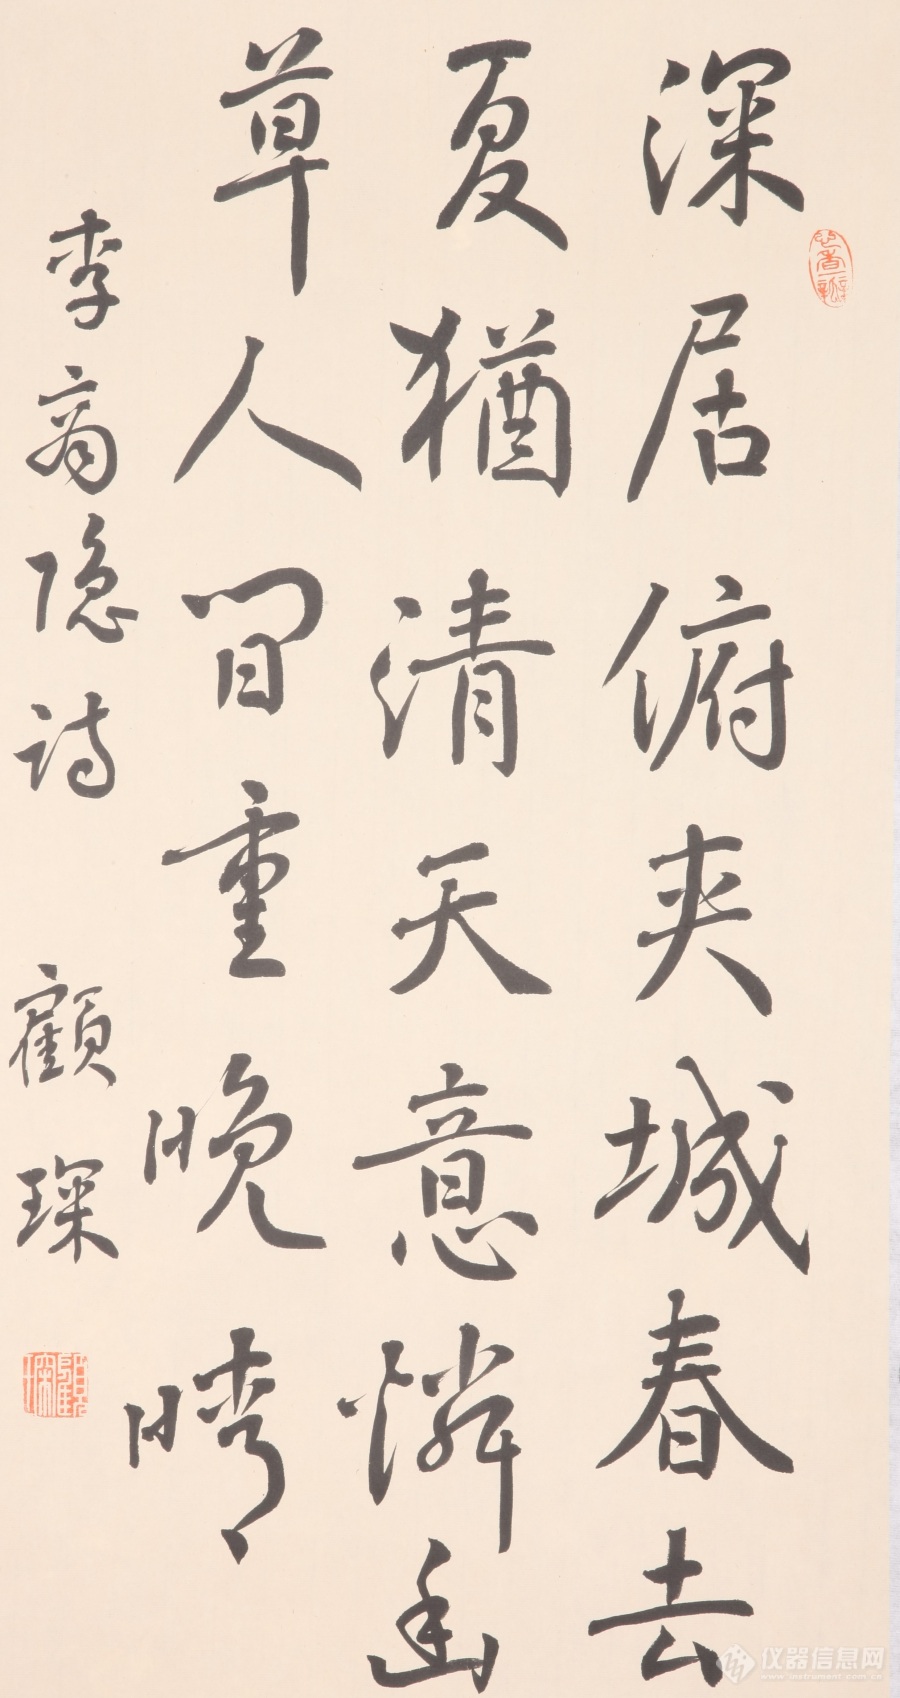 深居俯夹城春去
夏猶清天意憐幽
草人間重晚晴
李商隐诗 顧琛
顧琛
仪器信息网
www.instrument.com.cn